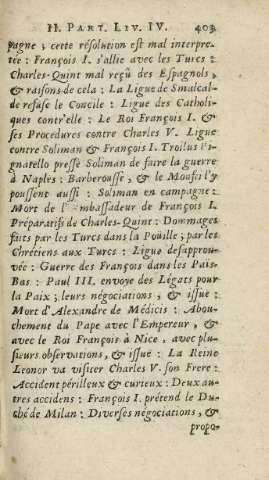 II. PART. LIV. IV. 403
pagne, cette résolution est mal interpre-
tée : François I. s'allie avec les Turcs :
Charles-Quint mal reçû des Espagnols,
& raisons de cela : La Ligue de Smalcal-
de refuse le Concile : Ligue des Catholi-
ques contr'elle : Le Roi François I. &
ses Procedures contre Charles V. Ligue
contre Soliman & François I. Troilus Pi-
gnatello presse Soliman de faire la guerre
à Naples : Barberousse, & le Moufti l'y
poussent aussi : Soliman en campagne :
Mort de l'Ambassadeur de François I.
Préparatifs de Charles-Quint : Dommages
faits par les Turcs dans la Poüille; par les
Chrétiens aux Turcs : Ligue desaprou-
vée : Guerre des François dans les Païs-
Bas : Paul III. envoye des Légats pour
la Paix; leurs négociations, & issuë :
Mort d'Alexandre de Médicis : Abou-
chement du Pape avec l'Empereur, &
avec le Roi François à Nice, avec plu-
sieurs observations, & issuë : La Reine
Leonor va visiter Charles V. son Frere :
Accident périlleux & curieux : Deux au-
tres accidens : François I. prétend le Du-
ché de Milan : Diverses négociations, &
propo-